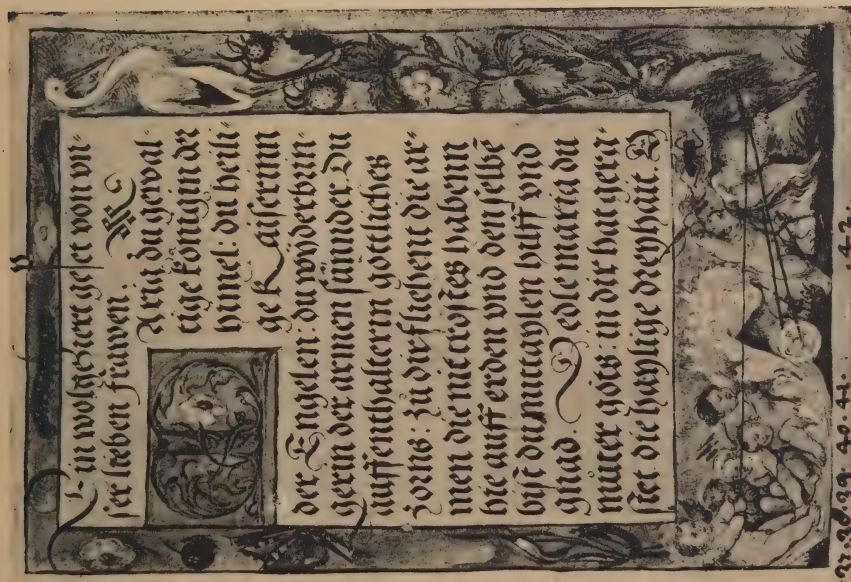 Ein wolgeziert gepet von vn-
ser lieben frawen.
M Aria du gewal-
tige königin der
himel: du heili-
ge Kaiserinn
der Engelen: du wyderbrin-
gerin der armen sünnder. Du
auffenthalterin göttliches
zorns: zü dir fliehent die ar-
men die nit trostes habenn
hie auff erden vnd den selbē
bist du mittaylen hilff vnd
gnad. O edle maria du
müter gots in dir hat gerū-
stet die haylige dreyhait. D
39. 40. 41. 42.